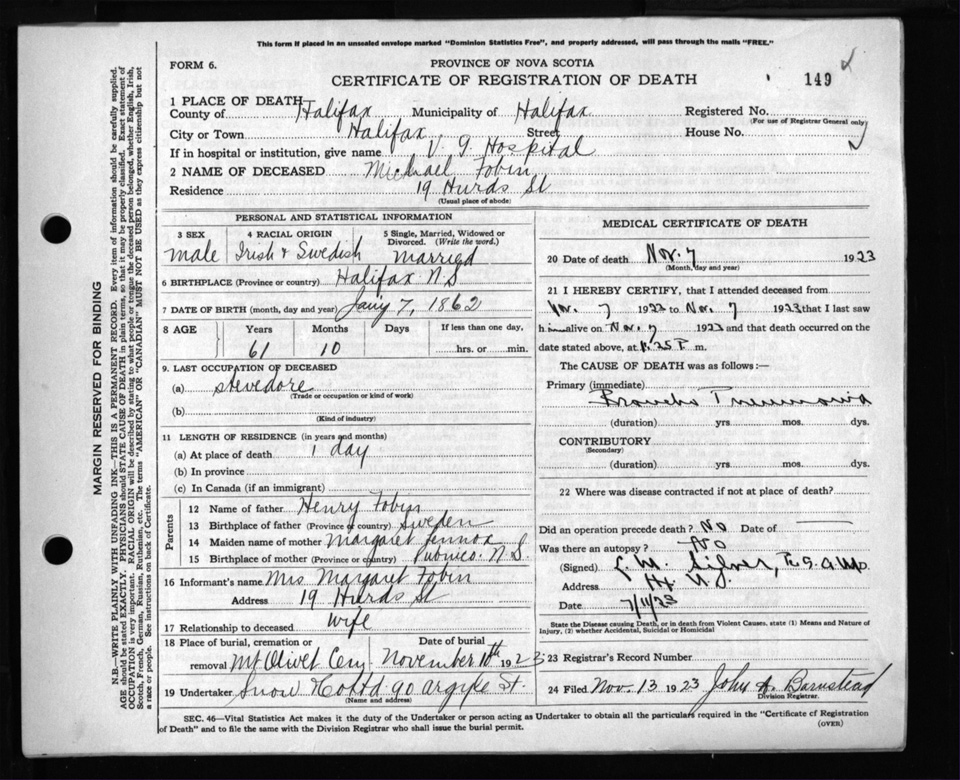 This form if placed in an unsealed envelope marked "Dominion Statistics Free", and properly addressed, will pass through the mails "FREE."
FORM 6.
PROVINCE OF NOVA SCOTIA
CERTIFICATE OF REGISTRATION OF DEATH
149
1 PLACE OF DEATH
County of Halifax Municipality of Halifax Registered No.
(For use of Registrar General only)
City or Town Halifax Street House No.
If in hospital or institution, give name V. G Hospital
2 NAME OF DECEASED Michael Tobin
Residence 19 Hurds St
(Usual place of abode)
MARGIN RESERVED FOR BINDING
N.B.—WRITE PLAINLY WITH UNFADING INK—THIS IS A PERMANENT RECORD. Every item of information should be carefully supplied.
AGE should be stated EXACTLY. PHYSICIANS should STATE CAUSE OF DEATH in plain terms, so that it may be properly classified. Exact statement of
OCCUPATION is very important. RACIAL ORIGIN will be described by stating to what people or tongue the deceased person belonged, whether English, Irish,
Scotch, French, German, Russian, Ruthenian, etc. The terms "AMERICAN" OR "CANADIAN" MUST NOT BE USED as they express citizenship but not
a race or people. See instructions on back of Certificate.
PERSONAL AND STATISTICAL INFORMATION
3 SEX
male
4 RACIAL ORIGIN
Irish & Swedish
5 Single, Married, Widowed or
Divorced. (Write the word.)
Married
6 BIRTHPLACE (Province or country) Halifax N S
7 DATE OF BIRTH (month, day and year) Jany 7, 1862
8 AGE Years Months Days If less than one day,
61 10 hrs. or min.
9. LAST OCCUPATION OF DECEASED
(a) stevedore
(Trade or occupation or kind of work)
(b)
(Kind of industry)
11 LENGTH OF RESIDENCE (in years and months)
(a) At place of death 1 day
(b) In province
(c) In Canada (if an immigrant)
Parents
12 Name of father Henry Tobin
13 Birthplace of father (Province or country) Sweden
14 Maiden name of mother Margaret Lennox
15 Birthplace of mother (Province or country) Pubnico. N.S.
16 Informant's name Mrs Margaret Tobin
Address 19 Hurds St
17 Relationship to deceased wife
18 Place of burial, cremation or
removal Mt Olivet Cem
Date of burial
November 10th 1923
19 Undertaker Snow & Co Ltd 90 Argyle St.
(Name and address)
MEDICAL CERTIFICATE OF DEATH
20 Date of death Nov. 7 1923
(Month, day and year)
21 I HEREBY CERTIFY, that I attended deceased from
Nov. 7 1923 to Nov. 7 1923 that I last saw
him alive on Nov. 7 1923 and that death occurred on
date stated above, at m.
The CAUSE OF DEATH was as follows:—
Primary (immediate)
Broncho Pneumonia
(duration) yrs. mos. dys.
CONTRIBUTORY
(Secondary)
(duration) yrs. mos. dys.
22 Where was disease contracted if not at place of death?
Did an operation precede death? No Date of
Was there an autopsy? No
(Signed)
Address
Date 7/11/23
State the Disease causing Death, or in death from Violent Causes, state (1) Means and Nature of
Injury, (2) whether Accidental, Suicidal or Homicidal
23 Registrar's Record Number
24 Filed Nov. 13 1923 John A. Barnstead
Division Registrar.
SEC. 46—Vital Statistics Act makes it the duty of the Undertaker or person acting as Undertaker to obtain all the particulars required in the "Certificate of Registration
of Death" and to file the same with the Division Registrar who shall issue the burial permit.
(OVER)